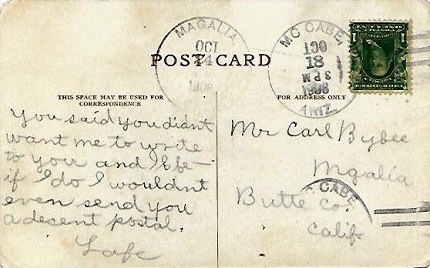 MAGALIA
OCT
24
1908
MC CABE,
OCT
18
PM
1908
ARIZ.
POST CARD
THIS SPACE MAY BE USED FOR
CORRESPONDENCE
FOR ADDRESS ONLY
You said you didnt
want me to write
to you and
if I do I wouldnt
even send you
a decent postal.
Lafe
Mr Carl Bybee
Mgalia
Butte Co.
Calif.
CABE